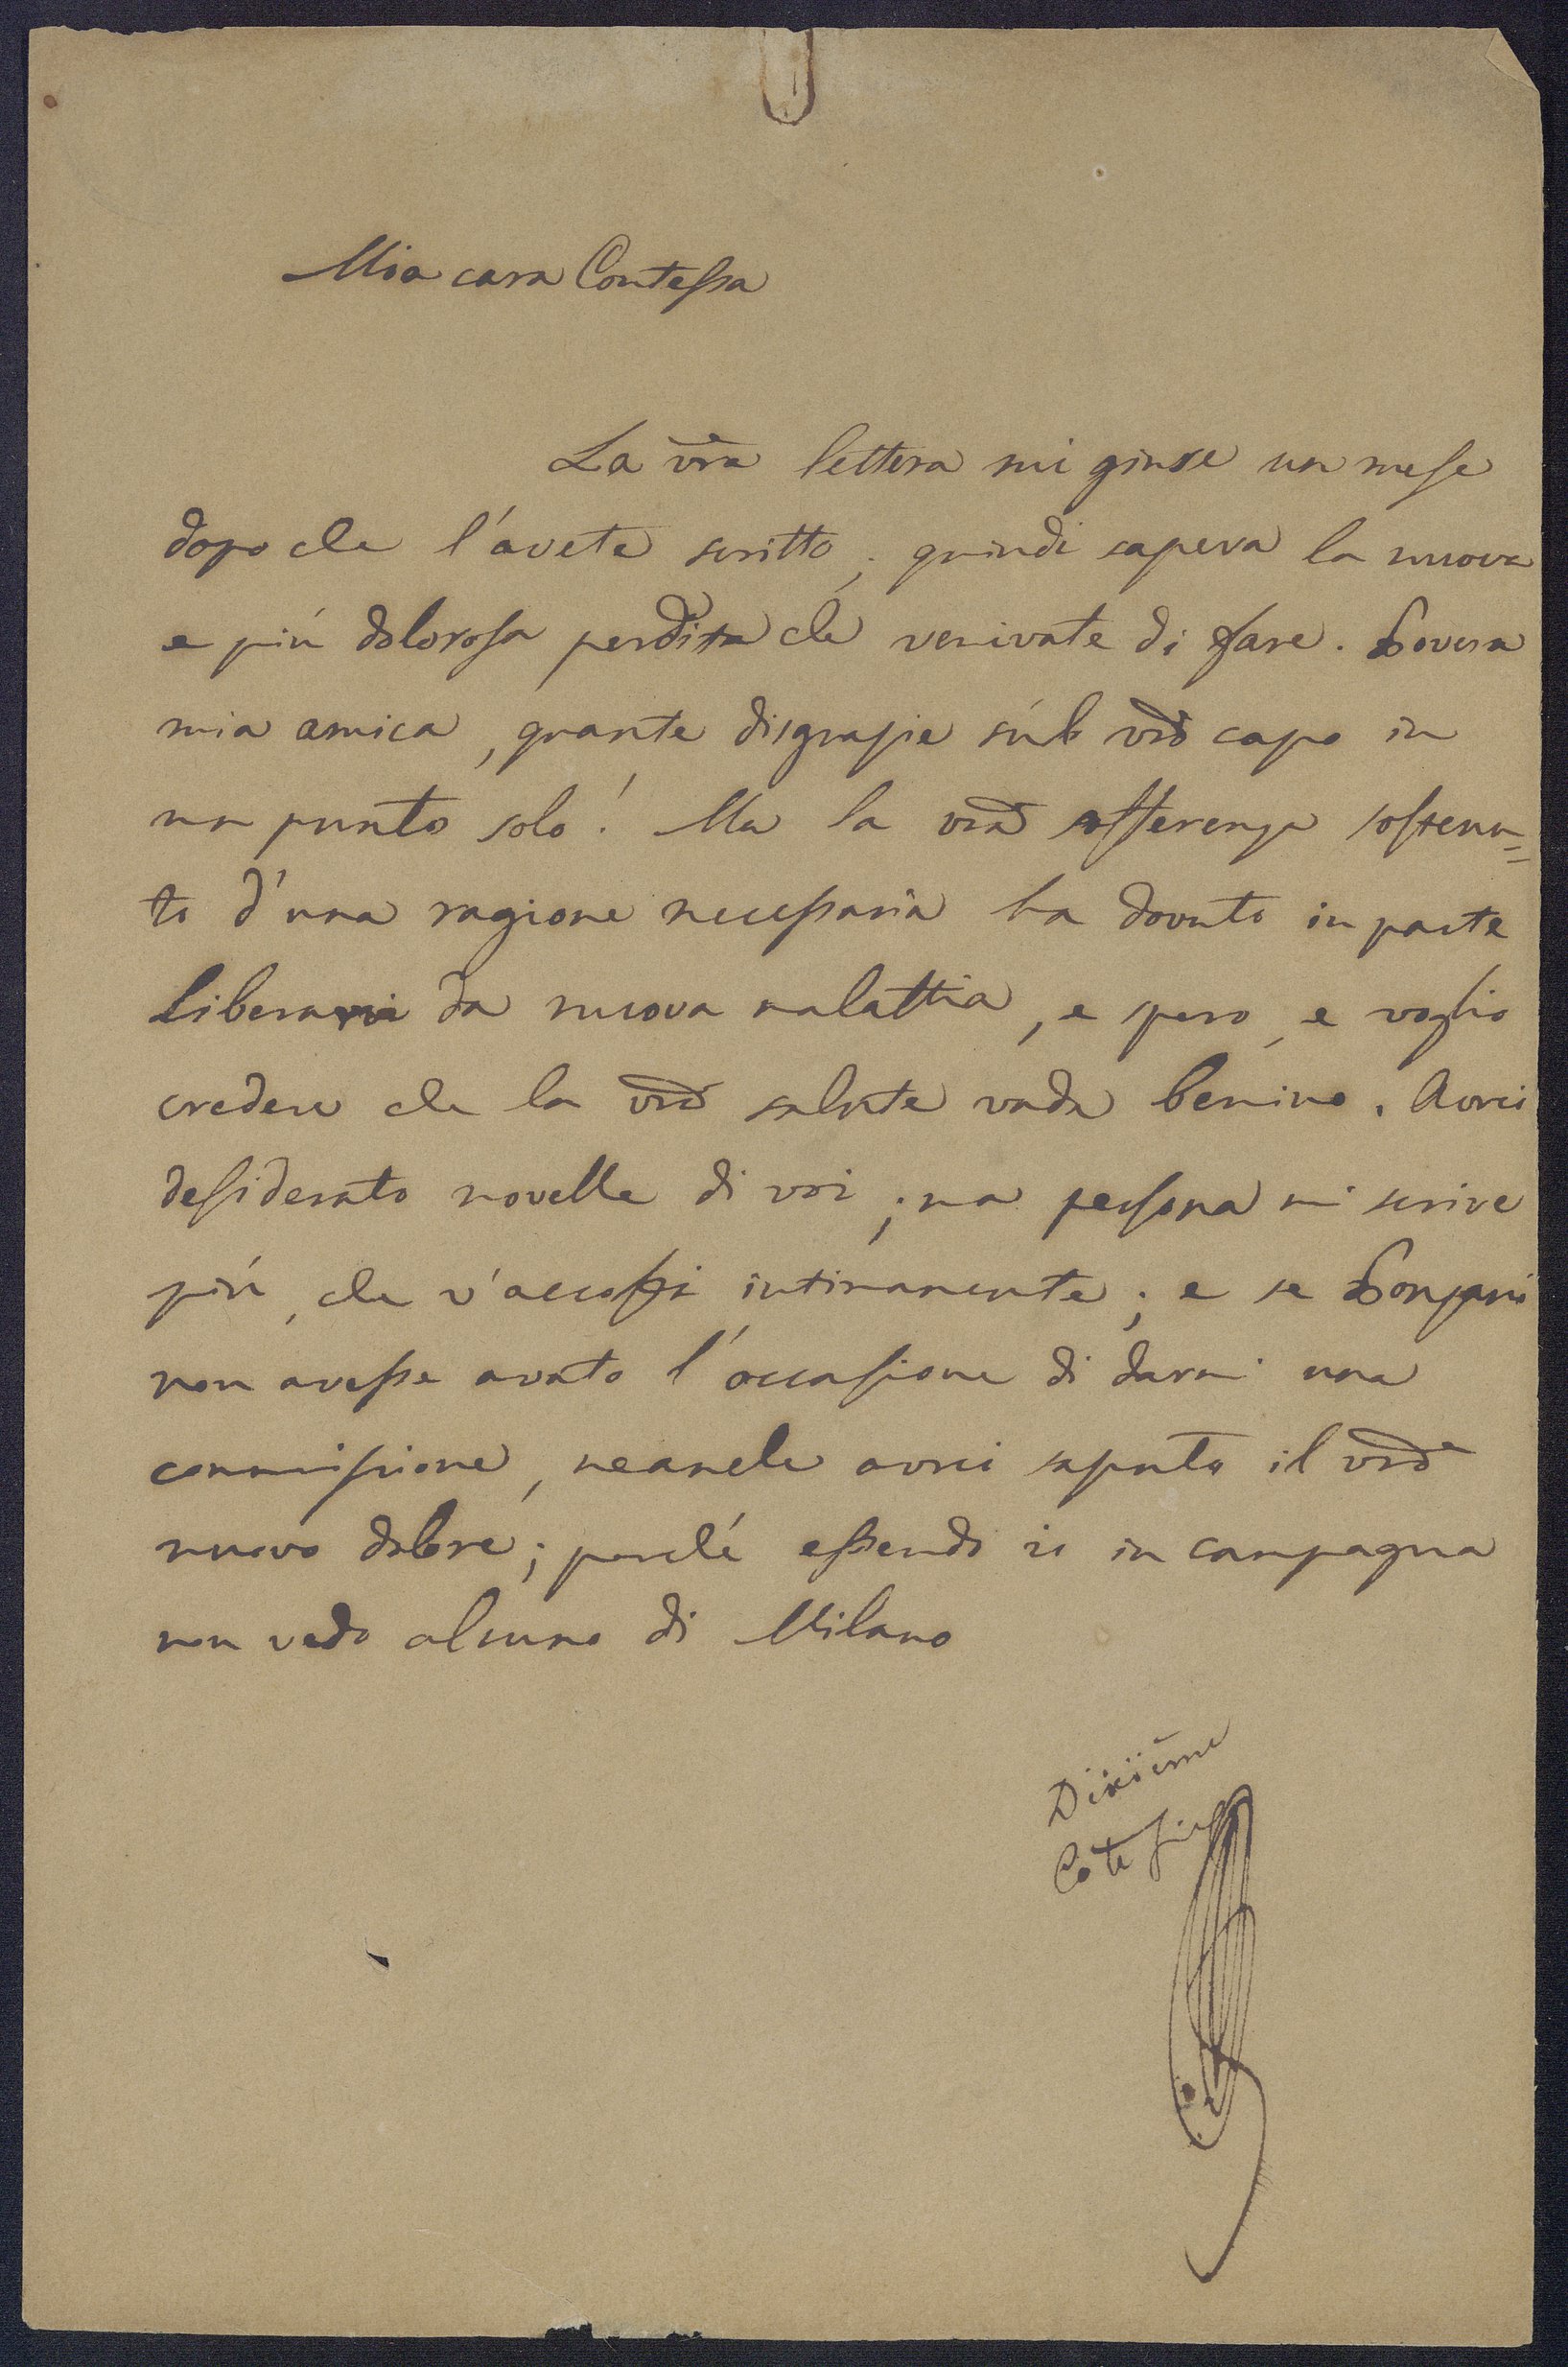 Mia cara Contessa
La vr̃a lettera mi giunse un mese
dopo che l'avete scritto; quindi sapeva la nuova
e più dolorosa perdita che venivate di fare. Povera
mia amica, quante disgrazie sul vr̃o capo in
un punto solo! Ma la vr̃a sofferenza sostenu=
ta d'una ragione necessaria ha dovuto in parte
liberarvi da nuova malattia, e spero, e voglio
credere che la vr̃a salute vada benino. Avrei
desiderato novelle di voi; ma persona mi scrive
più, che v'accosti intimamente; e se Ponzani
non avesse avuto l'occasione di darmi una
commissione, neanche avrei saputo il vr̃o
nuovo dolore; perché essendo io in campagna
non vedo alcuno di Milano
Dixième
Côte